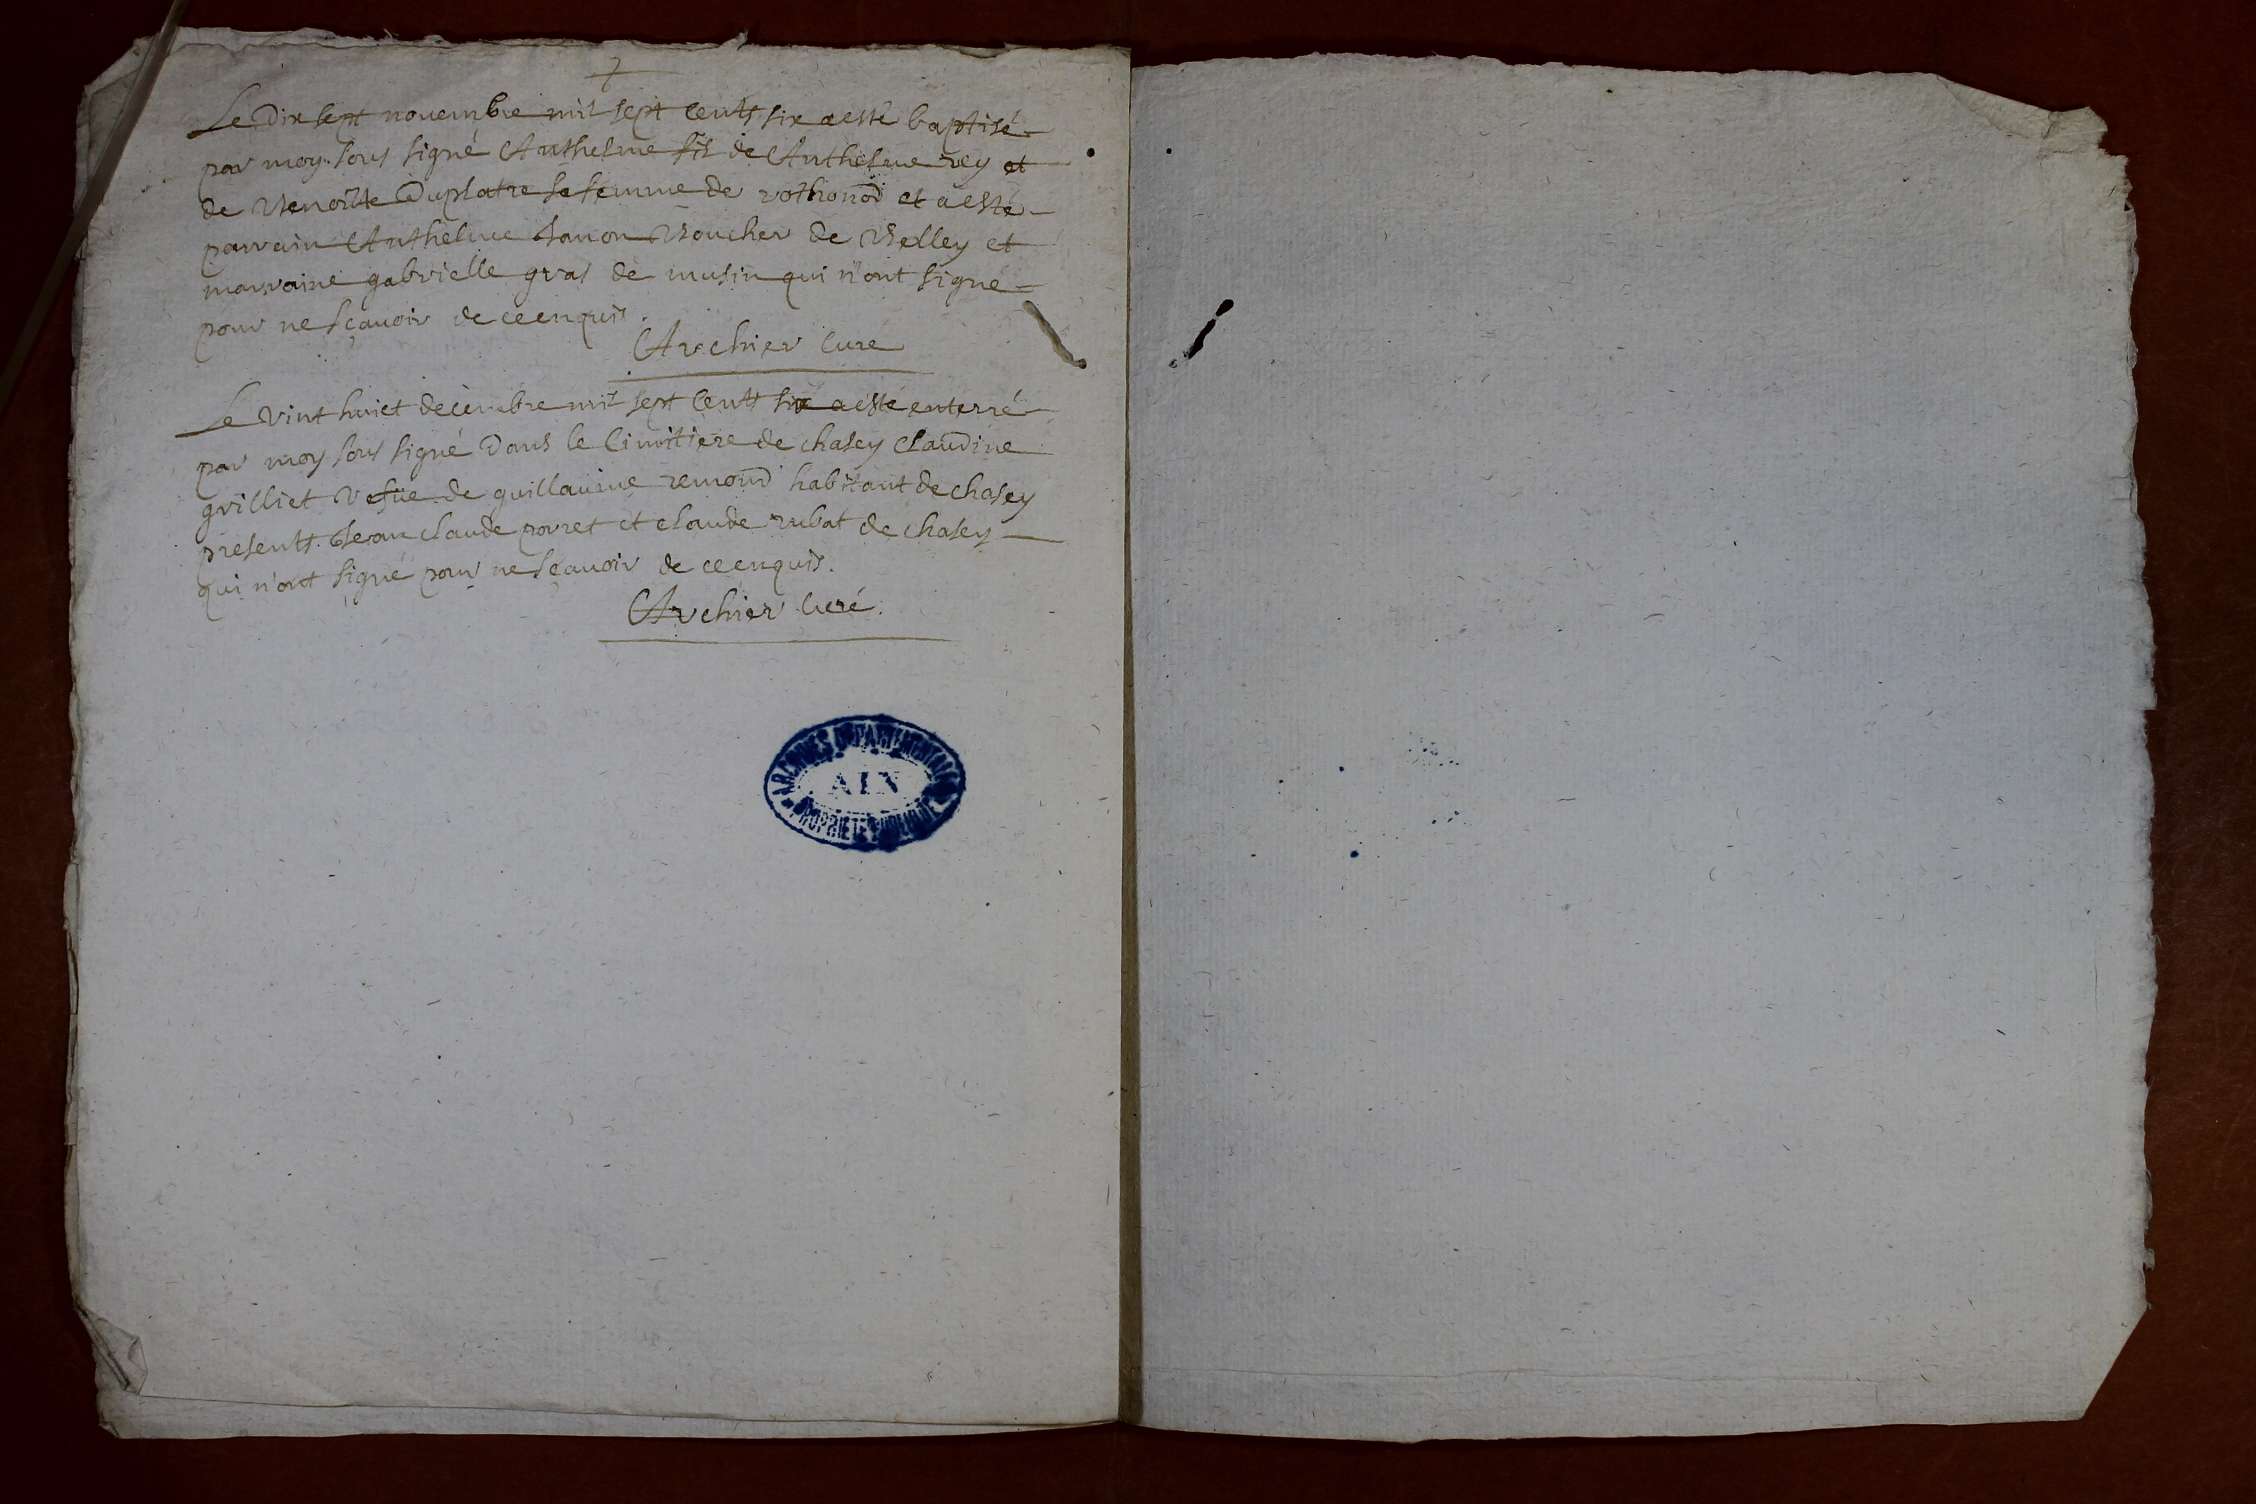 7
Le Dix sept novembre mil sept cents six a esté baptisé
par moy sous signé Anthelme fils de Anthelme rey et
de Benoitte Duplatre sa femme de rothonod et a esté
parrain Anthelme Boucher de Belley et
marraine gabrielle gras de musin qui n'ont signé
pour ne sçavoir de ce enquis.
Archier Curé
Le vint huict decembre mil sept cents six a esté enterré
par moy sous signé Dans le Cimitiere de chasey Claudine
grilliet vefue de guillaume remond habitant de chasey
presents Jean claude porret et claude rubat de chasey
qui n'ont signé pour ne sçavoir de ce enquis.
Archier Curé.
ARCHIVES DEPARTEMENTALES
AIN
PROPRIETE PUBLIQUE